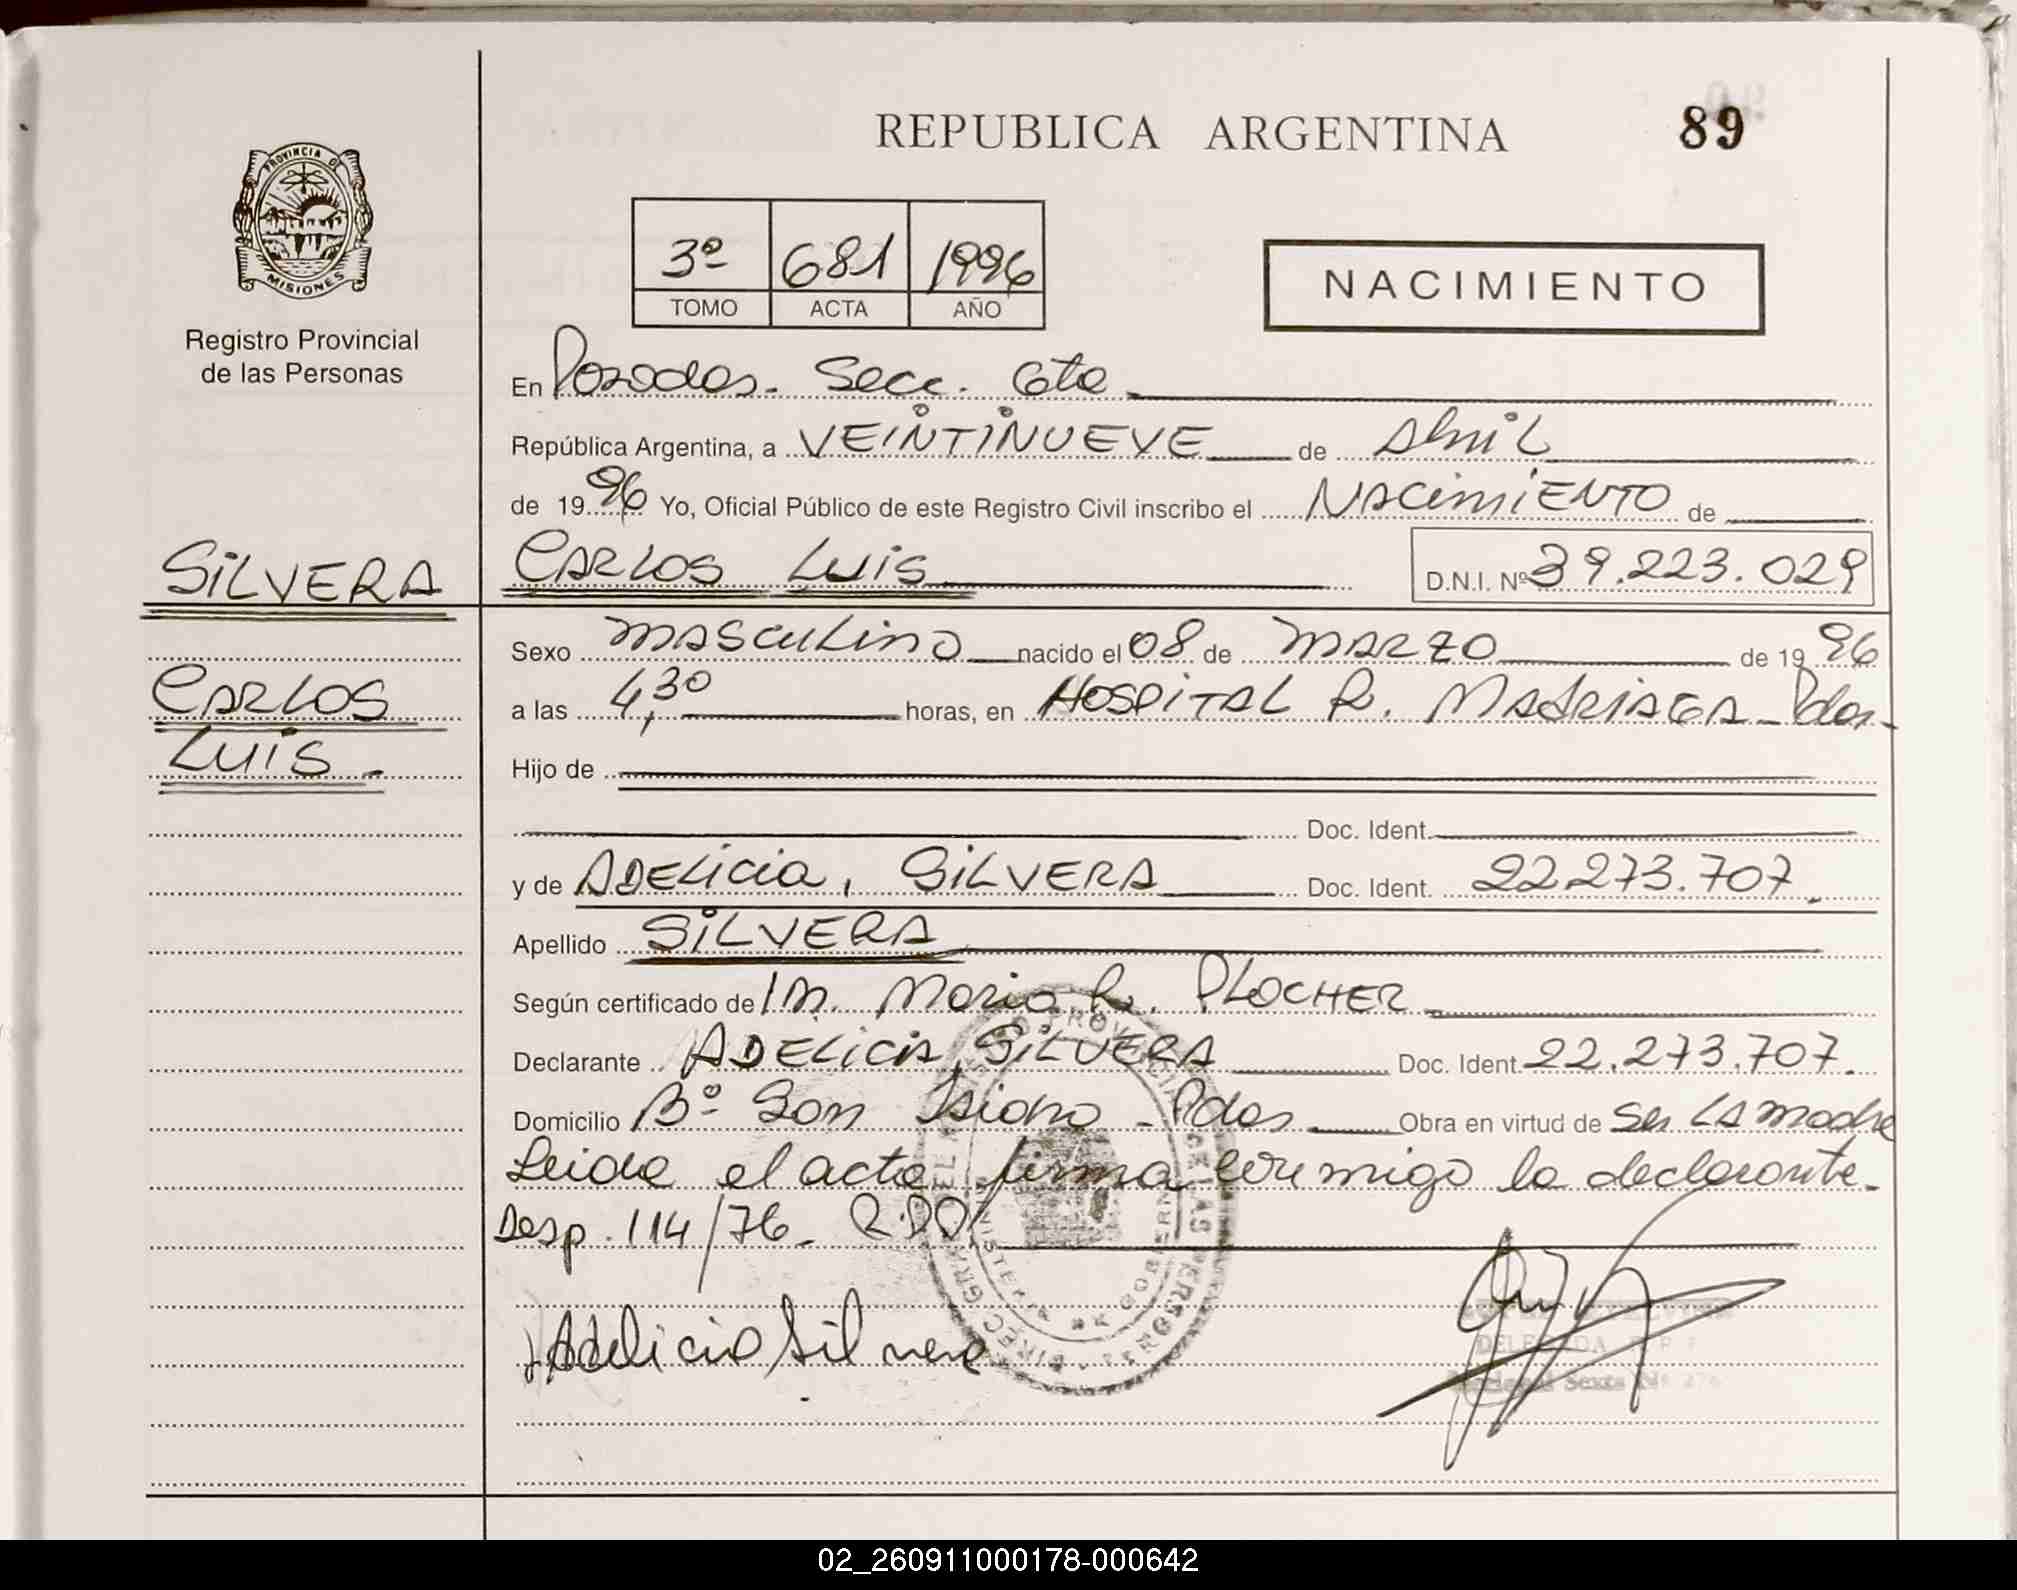 REPUBLICA ARGENTINA
89
PROVINCIA DE
MISIONES
Registro Provincial
de las Personas
3º 681 1996
TOMO ACTA AÑO
NACIMIENTO
En Posadas. Secc. 6ta
República Argentina, a VEINTINUEVE de Abril
de 1996 Yo, Oficial Público de este Registro Civil inscribo el NACIMIENTO de
SILVERA
CARLOS
LUIS.
CARLOS LUIS D.N.I. Nº 39.223.029
Sexo MASCULINO nacido el 08 de MARZO de 1996
a las 4,30 horas, en HOSPITAL R. MADRIAGA - Pdas.
Hijo de
Doc. Ident.
y de ADELICIA, SILVERA Doc. Ident. 22.273.707.
Apellido SILVERA
Según certificado de Maria R. PLOCHER
Declarante ADELICIA, SILVERA Doc. Ident. 22.273.707.
Domicilio Bº San Isidro - Pdas Obra en virtud de Ser LA madre
Leida el acta firma conmigo la declarante.
Desp. 114/76.
Adelicia Silvera
02_260911000178-000642